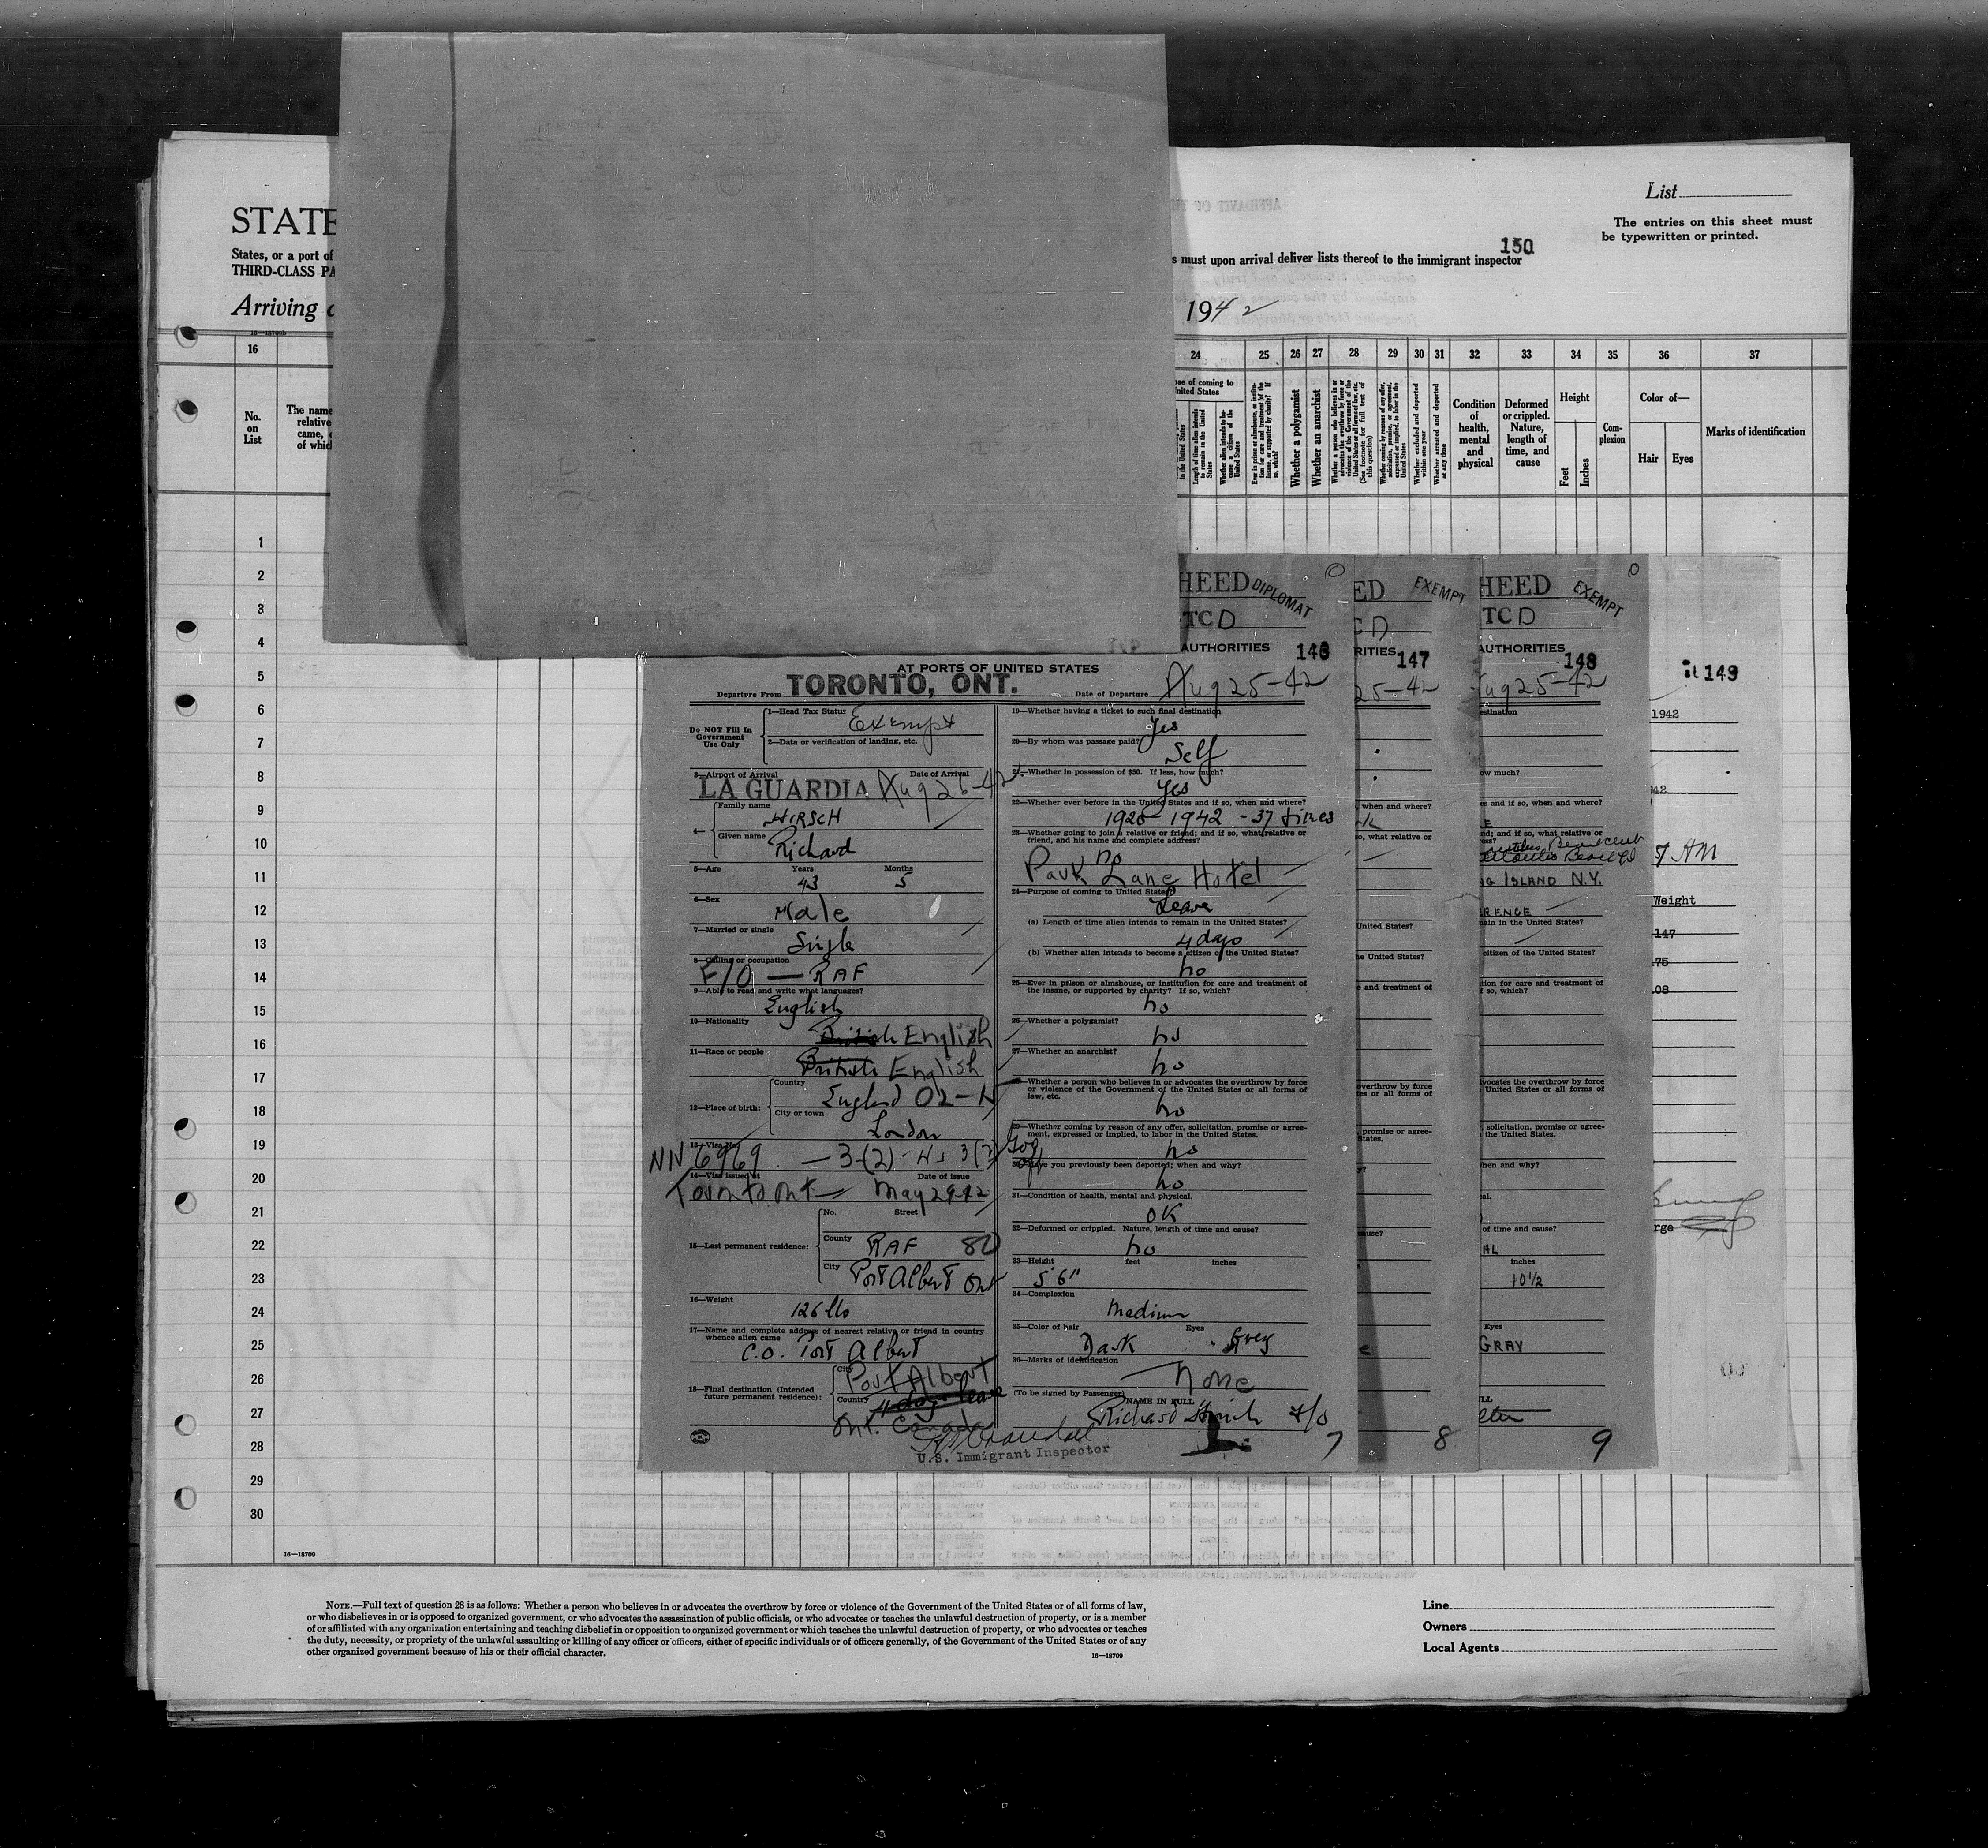 STATE
States, or a port of
THIRD-CLASS PA
Arriving
List
The entries on this sheet must
be typewritten or printed.
150
s must upon arrival deliver lists thereof to the immigrant inspector
1942
16—18709b
16
24 25 26 27 28 29 30 31 32 33 34 35 36 37
No.
on
List
The name
relative
came,
of which
ose of coming to
United States
Length of time alien intends to remain in the United States
Whether alien intends to become a citizen of the United States
Whether a polygamist
Whether an anarchist
Whether excluded and deported within one year
Whether arrested and deported at any time
Condition
of
health,
mental
and
physical
Deformed
or crippled.
Nature,
length of
time, and
cause
Height
Feet
Inches
Com-
plexion
Color of—
Hair
Eyes
Marks of identification
1
2
3
4
5
6
7
8
9
10
11
12
13
14
15
16
17
18
19
20
21
22
23
24
25
26
27
28
29
30
16—18709
HEED DIPLOMAT
TCD
AUTHORITIES 146
AT PORTS OF UNITED STATES
Departure From TORONTO, ONT. Date of Departure Aug 25-42
Do NOT Fill In
Government
Use Only
1—Head Tax Status Exempt
2—Data or verification of landing, etc.
3—Airport of Arrival Date of Arrival
LA GUARDIA Aug 26-42
4— Family name
HIRSCH
Given name Richard
5—Age Years Months
43 5
6—Sex
Male
7—Married or single
Single
8—Calling or occupation
F/O — RAF
9—Able to read and write what languages?
English
10—Nationality
British English
11—Race or people
British English
12—Place of birth:
Country
England 02-N
City or town
London
13—Visa No.
NIV 6969 — 3-(2)
14—Visa issued at Date of issue
Toronto Ont May 29-42
15—Last permanent residence:
No. Street
County RAF
City Port Albert Ont
16—Weight
126 lbs
17—Name and complete address of nearest relative or friend in country
whence alien came
C.O. Port Albert
18—Final destination (Intended
future permanent residence):
City Port Albert
Country 4 days leave
Ont. Canada
U.S. Immigrant Inspector
19—Whether having a ticket to such final destination
Yes
20—By whom was passage paid?
Self
21—Whether in possession of $50. If less, how much?
Yes
22—Whether ever before in the United States and if so, when and where?
1926 - 1942 - 37 times
23—Whether going to join a relative or friend; and if so, what relative or
friend, and his name and complete address?
no
Park Lane Hotel
24—Purpose of coming to United States?
Leave
(a) Length of time alien intends to remain in the United States?
4 days
(b) Whether alien intends to become a citizen of the United States?
no
25—Ever in prison or almshouse, or institution for care and treatment of
the insane, or supported by charity? If so, which?
no
26—Whether a polygamist?
no
27—Whether an anarchist?
no
28—Whether a person who believes in or advocates the overthrow by force
or violence of the Government of the United States or all forms of
law, etc.
no
29—Whether coming by reason of any offer, solicitation, promise or agree-
ment, expressed or implied, to labor in the United States.
no
30—Have you previously been deported; when and why?
no
31—Condition of health, mental and physical.
OK
32—Deformed or crippled. Nature, length of time and cause?
no
33—Height feet inches
5' 6"
34—Complexion
Medium
35—Color of hair Eyes
Dark Grey
36—Marks of identification
None
(To be signed by Passenger)
NAME IN FULL
Richard Hirsch F/O
7
ED EXEMPT
CD
RITIES 147
25-42
when and where?
so, what relative or
United States?
he United States?
e and treatment of
overthrow by force
es or all forms of
promise or agree-
States.
cause?
8
HEED EXEMPT
TCD
AUTHORITIES 148
Aug 25-42
estination
ow much?
es and if so, when and where?
nd; and if so, what relative or
NG ISLAND N.Y.
RENCE
main in the United States?
citizen of the United States?
tion for care and treatment of
f so, which?
vocates the overthrow by force
United States or all forms of
solicitation, promise or agree-
the United States.
when and why?
al.
of time and cause?
AL
inches
10 1/2
Eyes
GRAY
ULL
9
149
1942
942
7 AM
Weight
147
175
108
rge
NOTE.—Full text of question 28 is as follows: Whether a person who believes in or advocates the overthrow by force or violence of the Government of the United States or of all forms of law,
or who disbelieves in or is opposed to organized government, or who advocates the assassination of public officials, or who advocates or teaches the unlawful destruction of property, or is a member
of or affiliated with any organization entertaining and teaching disbelief in or opposition to organized government or which teaches the unlawful destruction of property, or who advocates or teaches
the duty, necessity, or propriety of the unlawful assaulting or killing of any officer or officers, either of specific individuals or of officers generally, of the Government of the United States or of any
other organized government because of his or their official character.
16—18709
Line
Owners
Local Agents